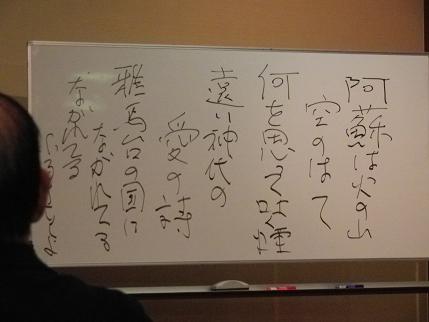 阿蘇は火の山
空のはて
何を思うて吐煙
遠い神代の
愛の詩
雅馬台の国に
ながれてる
ながれてる